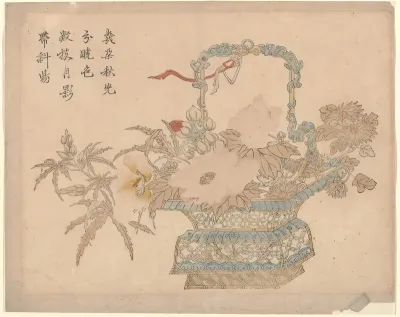 幾朶秋光
分曉色
數枝月影
帶斜陽